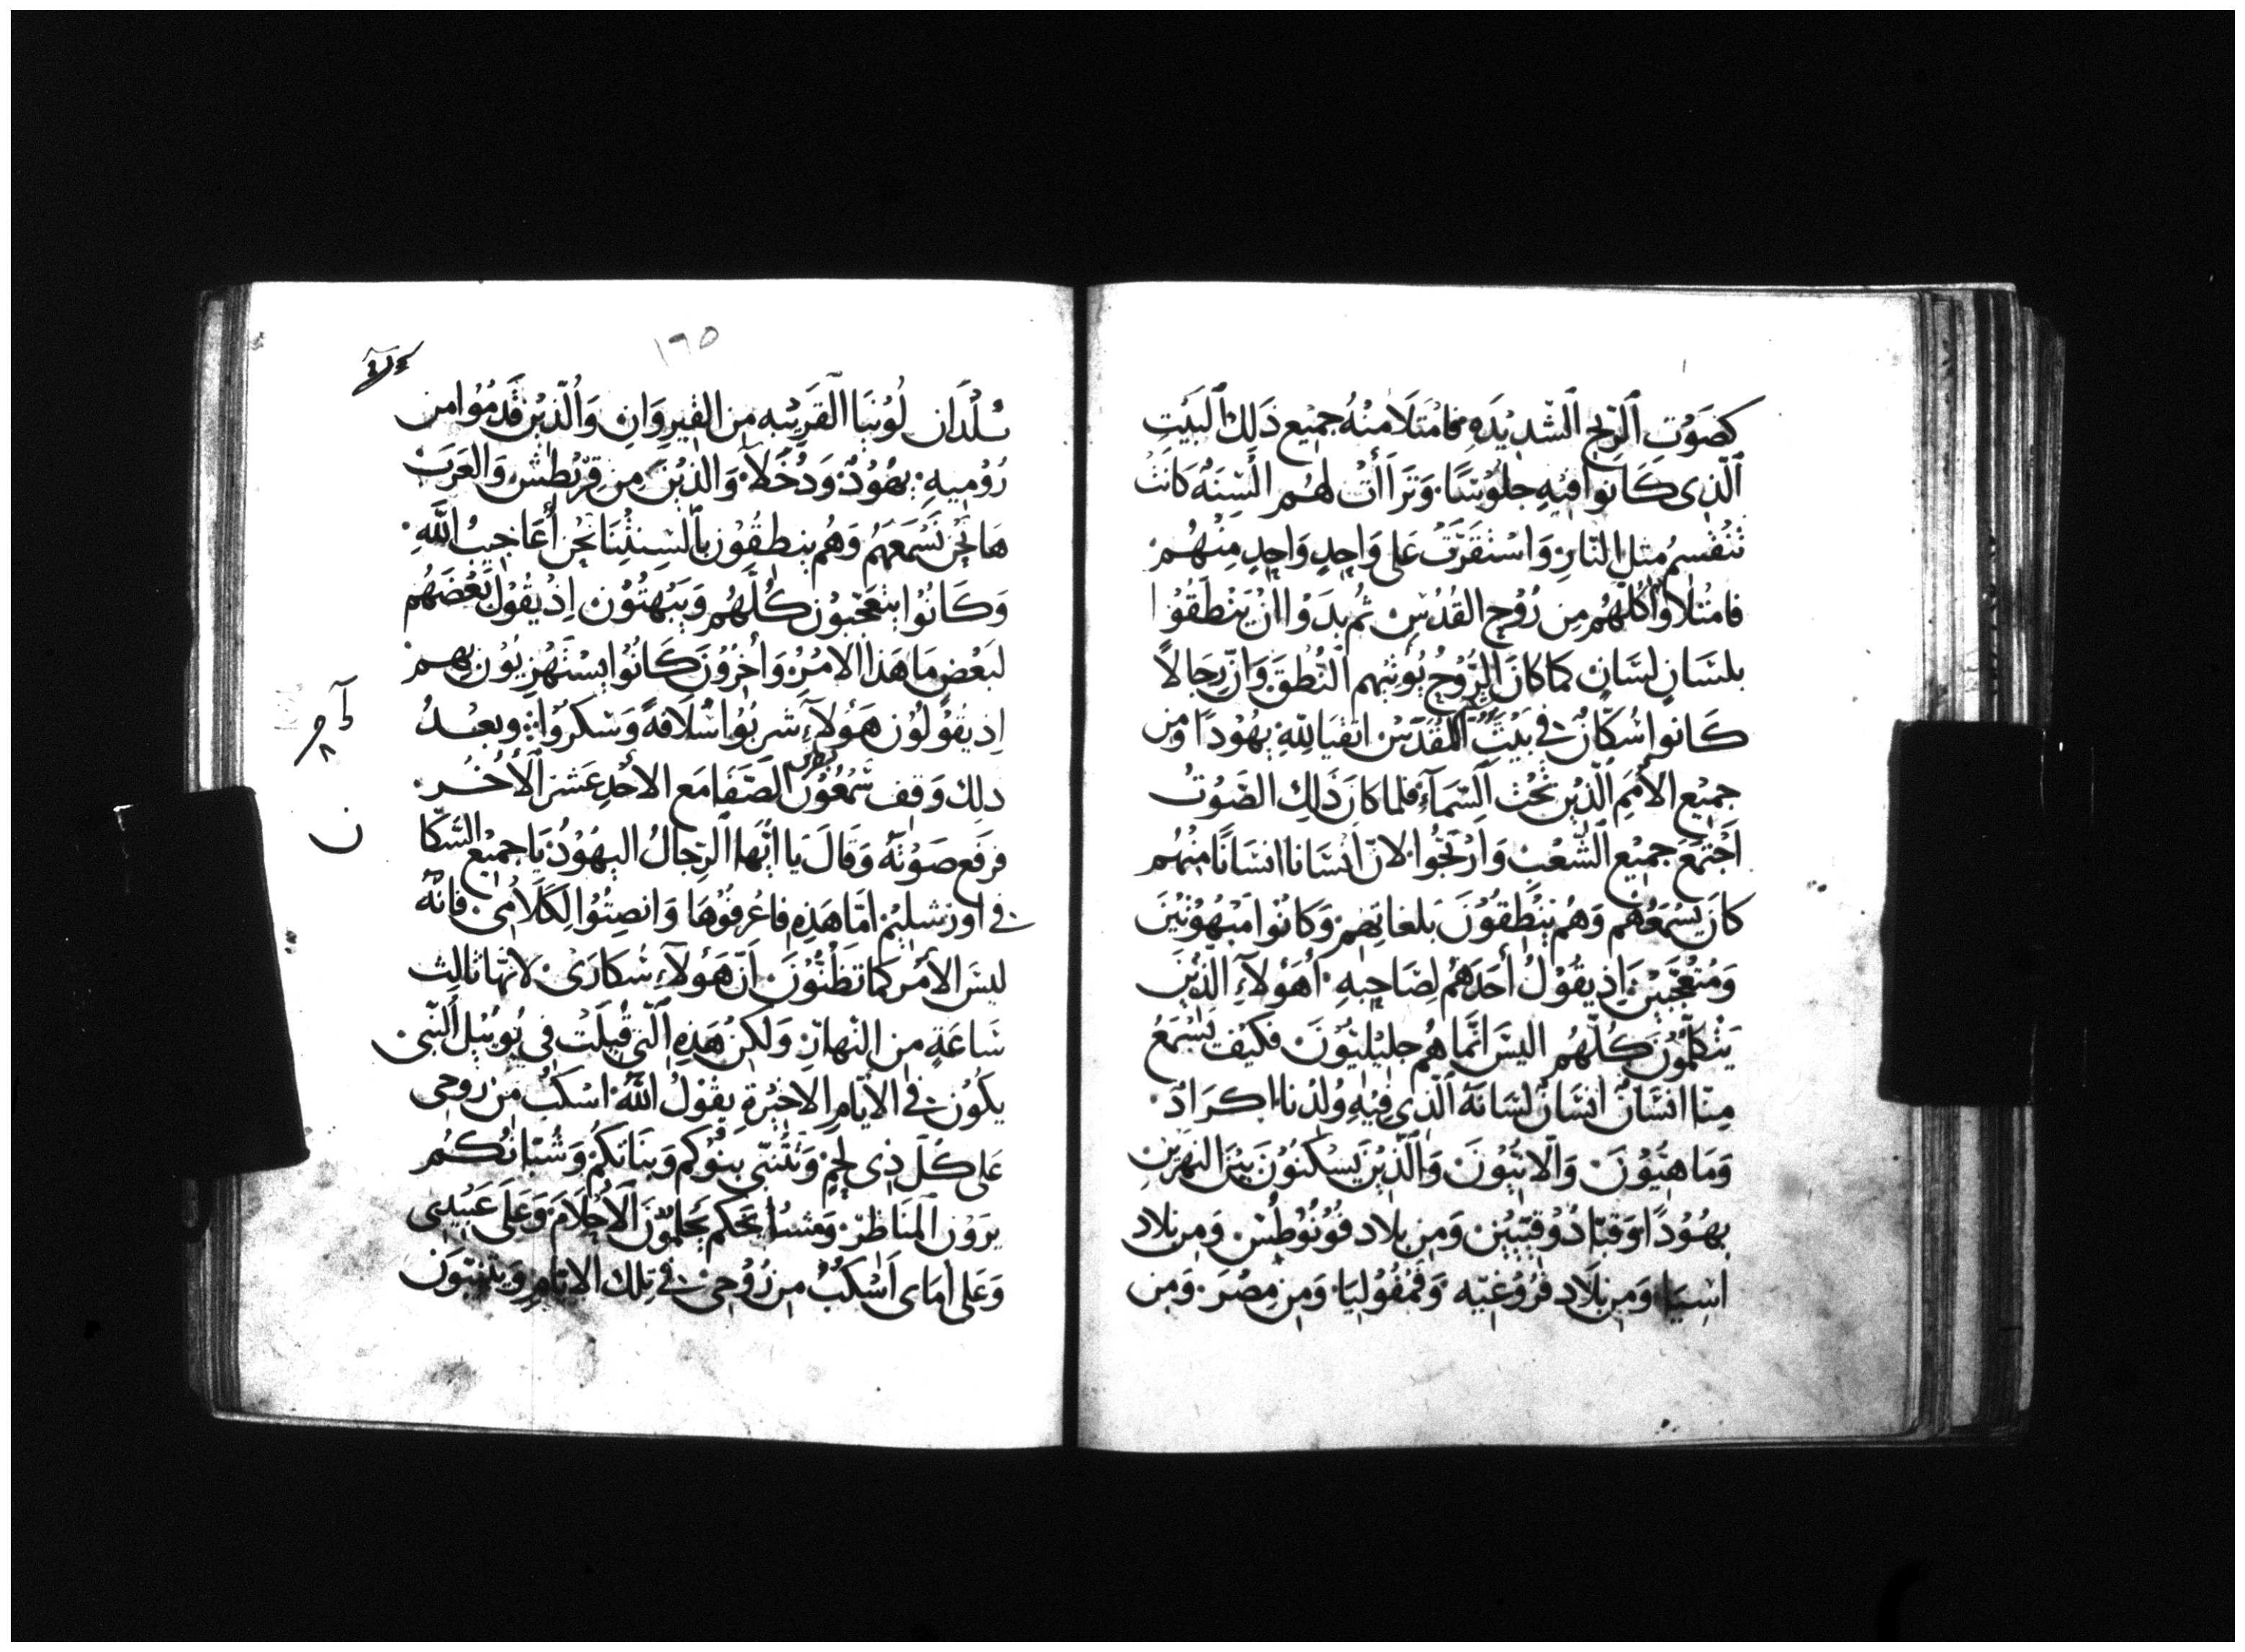 كصَوْتِ ٱلرّيح ٱلشّدِيْدَةِ فامْتَلَا مِنْهُ جمِيْع ذَلِكَ ٱلبَيْتِ
ٱلّذِى كَانوا فيْهِ جلُوْسًا. وَتَرَاأَتْ لهُم ٱلْسِنَة كَانَتْ
تَنْقَسِمُ مِثل النّارِ وَاسْتَقَرّتْ عَلى وَاحِدٍ وَاحِدٍ مِنْهُمْ
فامْتلأوا كلّهُم مِن رُوْح القُدُسِ ثم بدَوْا انْ يَنْطَقوْا
بلسَانٍ لسَانٍ كما كانَ الرُّوْحِ يُوْتيْهم ٱلنُّطقَ وَانّ رِجَالاً
كَانوا سُكّانٌ في بَيْتِ المُقَدّسْ اتقيَا للّهِ يهُوْدًا ومِن
جمِيْع الأمَمِ الّذِيْن تَحْتَ ٱلسّمَآءِ فلما كانَ ذَلِك الصّوْتُ
اجْتمَعَ جمِيْع الشّعْبِ وَارْتَجُّوا لانّ انسَانا انسَانًا منهُم
كانَ يَسْمَعُهُم وَهُم يَنْطِقُوْنَ بلغاتِهِمْ وَكانُوْا مَبْهُوْتِيْنَ
وَمُتعَجّبيْن اِذ يقُوْلُ أحَدهُم لِصَاحِبِهِ. أهَؤلآءِ الّذِيْنَ
يَتْكلّمُوْنَ كلّهُم اليسَ انّما هُم جلِيْليُّوْنَ فكيْف يَسْمَعُ
مِنّا انسَانٌ انسَانٌ لسَانَهُ ٱلّذِى فِيْهِ وُلِدْنا. اكرَادٌ.
وَمَاهِيُّوْنَ وَالَانيُّوْنَ وَٱلّذِيْنَ يَسْكنُوْنَ بَيْنَ النهرَيْنِ
يهُوْدًا وَقبّادُوْقيّيْنَ وَمِن بلاد فُوْنُوْطُسْ وَمِن بلاد
اسِيَا وَمِن بلَاد فرُوْغيّه وَفمْفُوْليَا. وَمِن مِصْرَ. وَمِن
١٦٥
بُلْدَان لُوْبيَا القرِيْبه مِن القيرِوَانِ وَالّذِيْن قدمُوْا من
رُوْمِيهِ. يهُوْدٌ وَدُخَلَآ. وَالذِيْنَ مِن قِرّيْطِشْ وَالعَرَبْ
هَانحْن نَسْمَعَهُم وَهُم ينطِقُوْن بأَلسِنتِنَا نحْن أعَاجيبُ اللّهِ.
وَكَانُوْا يتعَجّبوْن كُلّهُم وَيَبْهتُوْن اِذ يقُوْل بَعْضَهُم
لبَعْضٍ مَا هَذا الامْرُ. وَاخرُوْنَ كَانُوْا يسْتَهْزِيوْن بِهِمْ
اِذ يقُوْلُوْن هَؤلآءِ شَرِبُوْا سُلَافةً وَسَكرُوْا: وبعْدُ
ذلِك وَقف شَمْعُوْنُ الصّفَا مَع الأحَدِ عَشَرَ ٱلأُخَرْ.
فرفع صَوْتهُ وَقالَ يا ايّها ٱلرّجَالُ اليهُوْدُ يَا جميْع السُّكّا
ن
في اورَشليْم امّا هَذِهِ فاعْرفُوْهَا وَانصِتُوْا لِكلَامِي. فانّه
ليسَ الأمْر كما تظنُّوْنَ انّ هَؤلآءِ سُكارَى. لانهَا ثالِث
سَاعَةٍ مِن النهَارِ. وَلكنْ هَذِهِ ٱلّتي قُيِلَتْ في يُوئيْل ٱلنّبي.
يكُوْن في الأيّامِ الاخيْرةِ يقوْلُ اللّهُ. اسْكبُ مِن رُوحِى
عَلى كُلّ ذِى لحْمٍ وَيَتَنبّى بَنُوْكم وَبنَاتكمْ وَشُبّانُكُمْ
يرَوْن المَنَاظرْ وَمشَايحكم يَحلمُوْنَ الَأحْلَامَ. وَعَلَى عَبيْدِى
وَعَلى أمَاى اسْكُبُ مِن رُوْحِى في تِلك الايّامِ وَيتنبّوْنَ